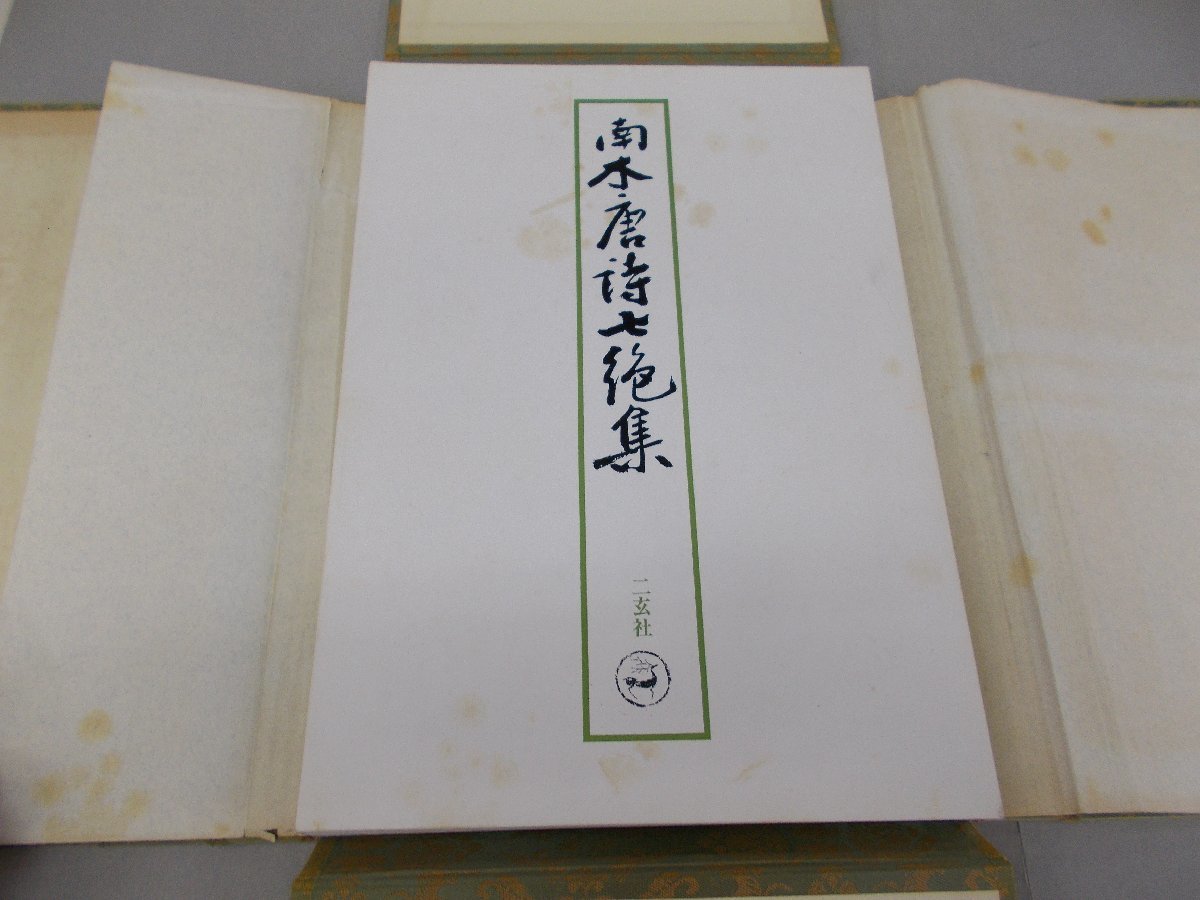 南木唐詩七絶集
二玄社